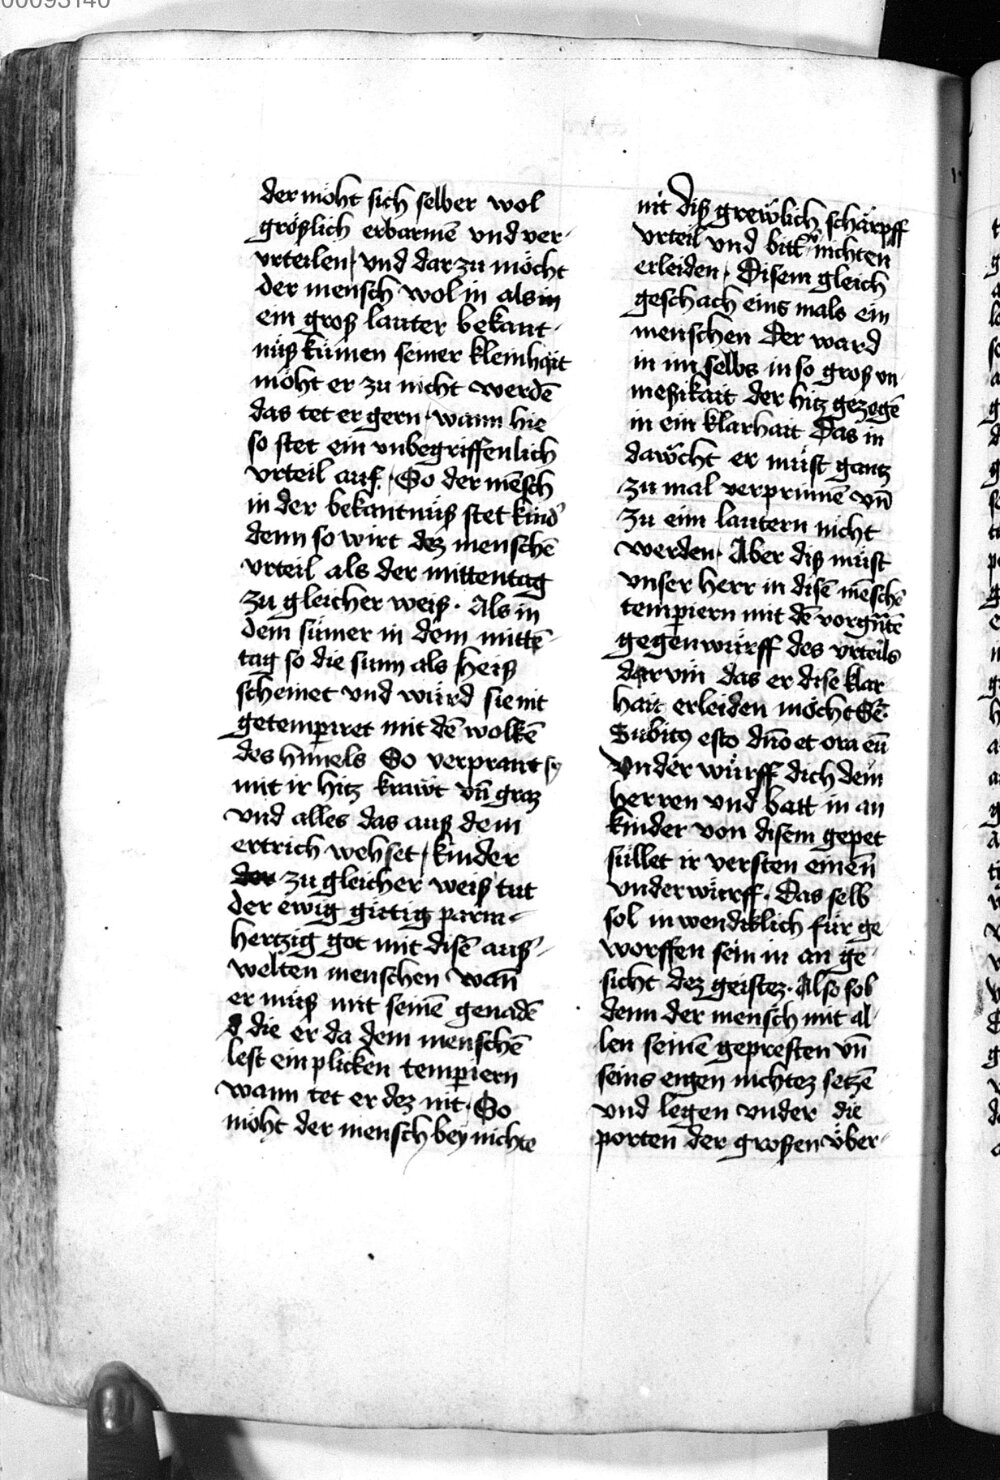 00093140
der möht sich selber wol
größlich erbarmē vnd ver-
vrteilen, vnd dar zu möcht
der mensch wol in als in
ein groß lauter bekant-
nüß kumen seiner kleinhait
möht er zu nicht werdē
das tet er gern, wann hie
so stet ein vnbegriffenlich
vrteil auf, So der mēsch
in der bekantnüß stet kind'
denn so wirt dez menschē
vrteil als der mittentag
zu gleicher weiß. Als in
dem sumer in dem mittē-
tag so die sunn als heiß
scheinet vnd würd sie nit
getemperiret mit dē wolkē
des himels So verprant sy
mit ir hitz krawt vn̄ graz
vnd alles das auß dem
ertrich wehset, kinder
zu gleicher weiß tut
der ewig gütig parm-
hertzig got mit disē auß-
welten menschen wan̄
er müß mit seinē genadē
die er da dem menschē
lest ein plicken temperiern
wann tet er dez nit, So
möht der mensch bey nichte
nit diß grewlich schärpff
vrteil vnd bitt' nichten
erleiden, Disem gleich
geschach eins mals ein
menschen Der ward
in im selbs in so groß vn
meßikait der hitz gezogē
in ein klarhait Das in
dawcht er müst gantz
zu mal verprinnē vn̄
zu eim lautern nicht
werden, Aber diß müst
vnser herr in disē mēschē
temperiern mit dē
gegenwürff des vrteils
dar vm das er dise klar
hait erleiden möcht
Subitꝰ esto dn̄o et ora eū
Vnder würff dich dem
herren vnd batt in an
kinder von disem gepet
süllet ir versten einen
vnderwürff, Das selb
sol inwendiklich für ge
worffen sein in an ge
sicht dez geistez. Also sol
denn der mensch mit al
len seinē gepresten vn̄
seins eigen nichtez setzē
vnd legen vnder die
porten der großen über-